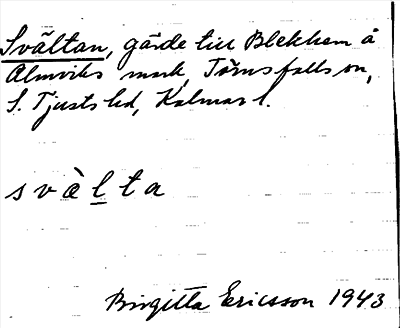 Svältan, gärde till Blekhem å
Almviks mark, Törnsfalls sn,
S. Tjusts hd, Kalmar l.
svàl̲ta
Birgitta Ericsson 1943